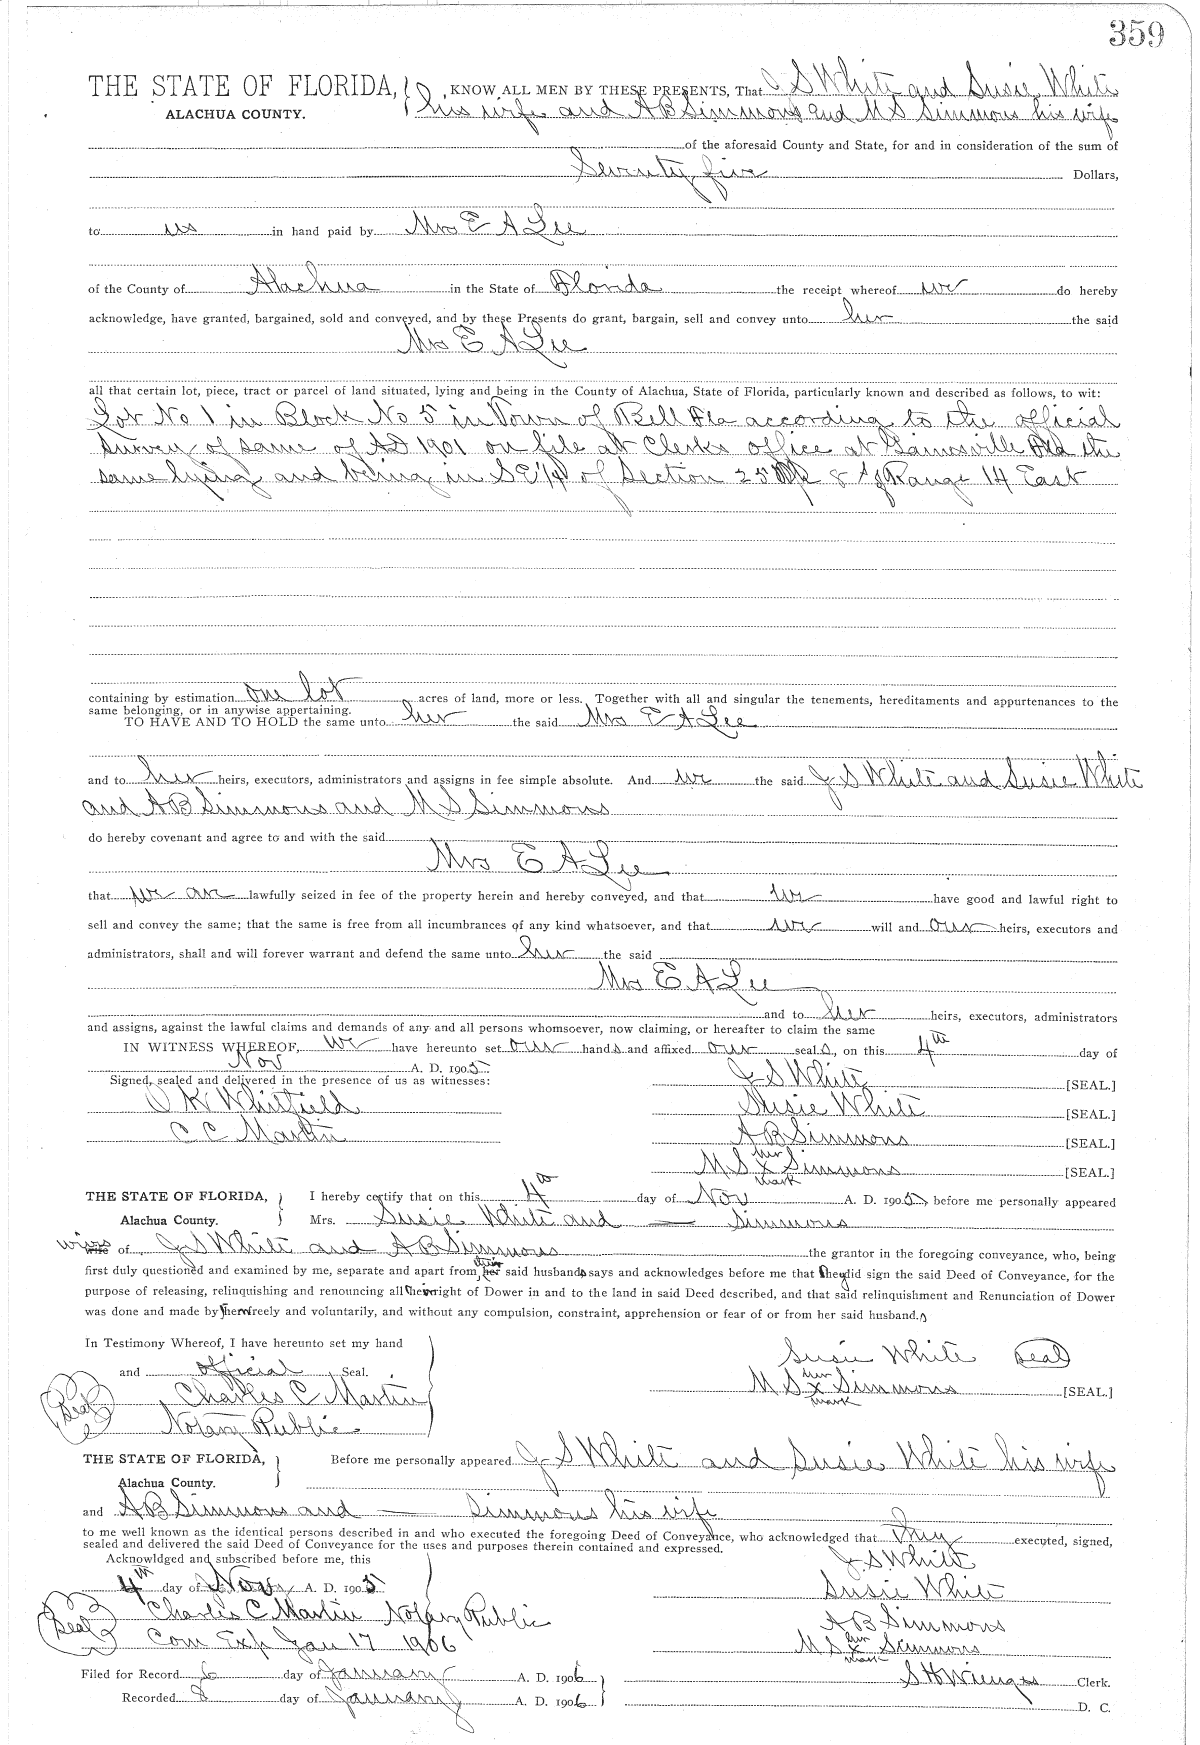 359
THE STATE OF FLORIDA, KNOW ALL MEN BY THESE PRESENTS, That J S White and Susie White
ALACHUA COUNTY. his wife and A B Simmons and M S Simmons his wife
of the aforesaid County and State, for and in consideration of the sum of
Seventy five Dollars,
to us in hand paid by Mrs E A Lee
of the County of Alachua in the State of Florida the receipt whereof we do hereby
acknowledge, have granted, bargained, sold and conveyed, and by these Presents do grant, bargain, sell and convey unto her the said
Mrs E A Lee
all that certain lot, piece, tract or parcel of land situated, lying and being in the County of Alachua, State of Florida, particularly known and described as follows, to wit:
Lot No 1 in Block No 5 in Town of Bell Fla according to the official
survey of same of AD 1901 on file at Clerks office at Gainesville the
same lying and being in SE 1/4 of Section 25 Tp 8 S of Range 14 East
containing by estimation one lot acres of land, more or less. Together with all and singular the tenements, hereditaments and appurtenances to the
same belonging, or in anywise appertaining.
TO HAVE AND TO HOLD the same unto her the said Mrs E A Lee
and to her heirs, executors, administrators and assigns in fee simple absolute. And we the said J S White and Susie White
and A B Simmons and M S Simmons
do hereby covenant and agree to and with the said
Mrs E A Lee
that we are lawfully seized in fee of the property herein and hereby conveyed, and that we have good and lawful right to
sell and convey the same; that the same is free from all incumbrances of any kind whatsoever, and that we will and our heirs, executors and
administrators, shall and will forever warrant and defend the same unto her the said
Mrs E A Lee
and to her heirs, executors, administrators
and assigns, against the lawful claims and demands of any and all persons whomsoever, now claiming, or hereafter to claim the same
IN WITNESS WHEREOF, We have hereunto set our hands and affixed our seals, on this 4th day of
Nov A. D. 1905
Signed, sealed and delivered in the presence of us as witnesses: J S White [SEAL.]
O K Whitfield Susie White [SEAL.]
C C Martin A B Simmons [SEAL.]
M S her x mark Simmons [SEAL.]
THE STATE OF FLORIDA, I hereby certify that on this 4th day of Nov A. D. 1905, before me personally appeared
Alachua County. Mrs. Susie White and — Simmons
wives of J S White and A B Simmons the grantor in the foregoing conveyance, who, being
first duly questioned and examined by me, separate and apart from their said husbands says and acknowledges before me that they did sign the said Deed of Conveyance, for the
purpose of releasing, relinquishing and renouncing all their right of Dower in and to the land in said Deed described, and that said relinquishment and Renunciation of Dower
was done and made by them freely and voluntarily, and without any compulsion, constraint, apprehension or fear of or from her said husband.s
In Testimony Whereof, I have hereunto set my hand Susie White Seal
and official Seal. M S her x mark Simmons [SEAL.]
Seal Charles C Martin
Notary Public
THE STATE OF FLORIDA, Before me personally appeared J S White and Susie White his wife
Alachua County.
and A B Simmons and — Simmons his wife
to me well known as the identical persons described in and who executed the foregoing Deed of Conveyance, who acknowledged that they executed, signed,
sealed and delivered the said Deed of Conveyance for the uses and purposes therein contained and expressed.
Acknowldged and subscribed before me, this J. S. White
4th day of Nov A. D. 1905 Susie White
Seal Charles C. Martin Notary Public A B Simmons
Com Exp Jan 17 1906 M S her x mark Simmons
Filed for Record 6 day of January A. D. 1906 S H Wienges Clerk.
Recorded 8 day of January A. D. 1906 D. C.